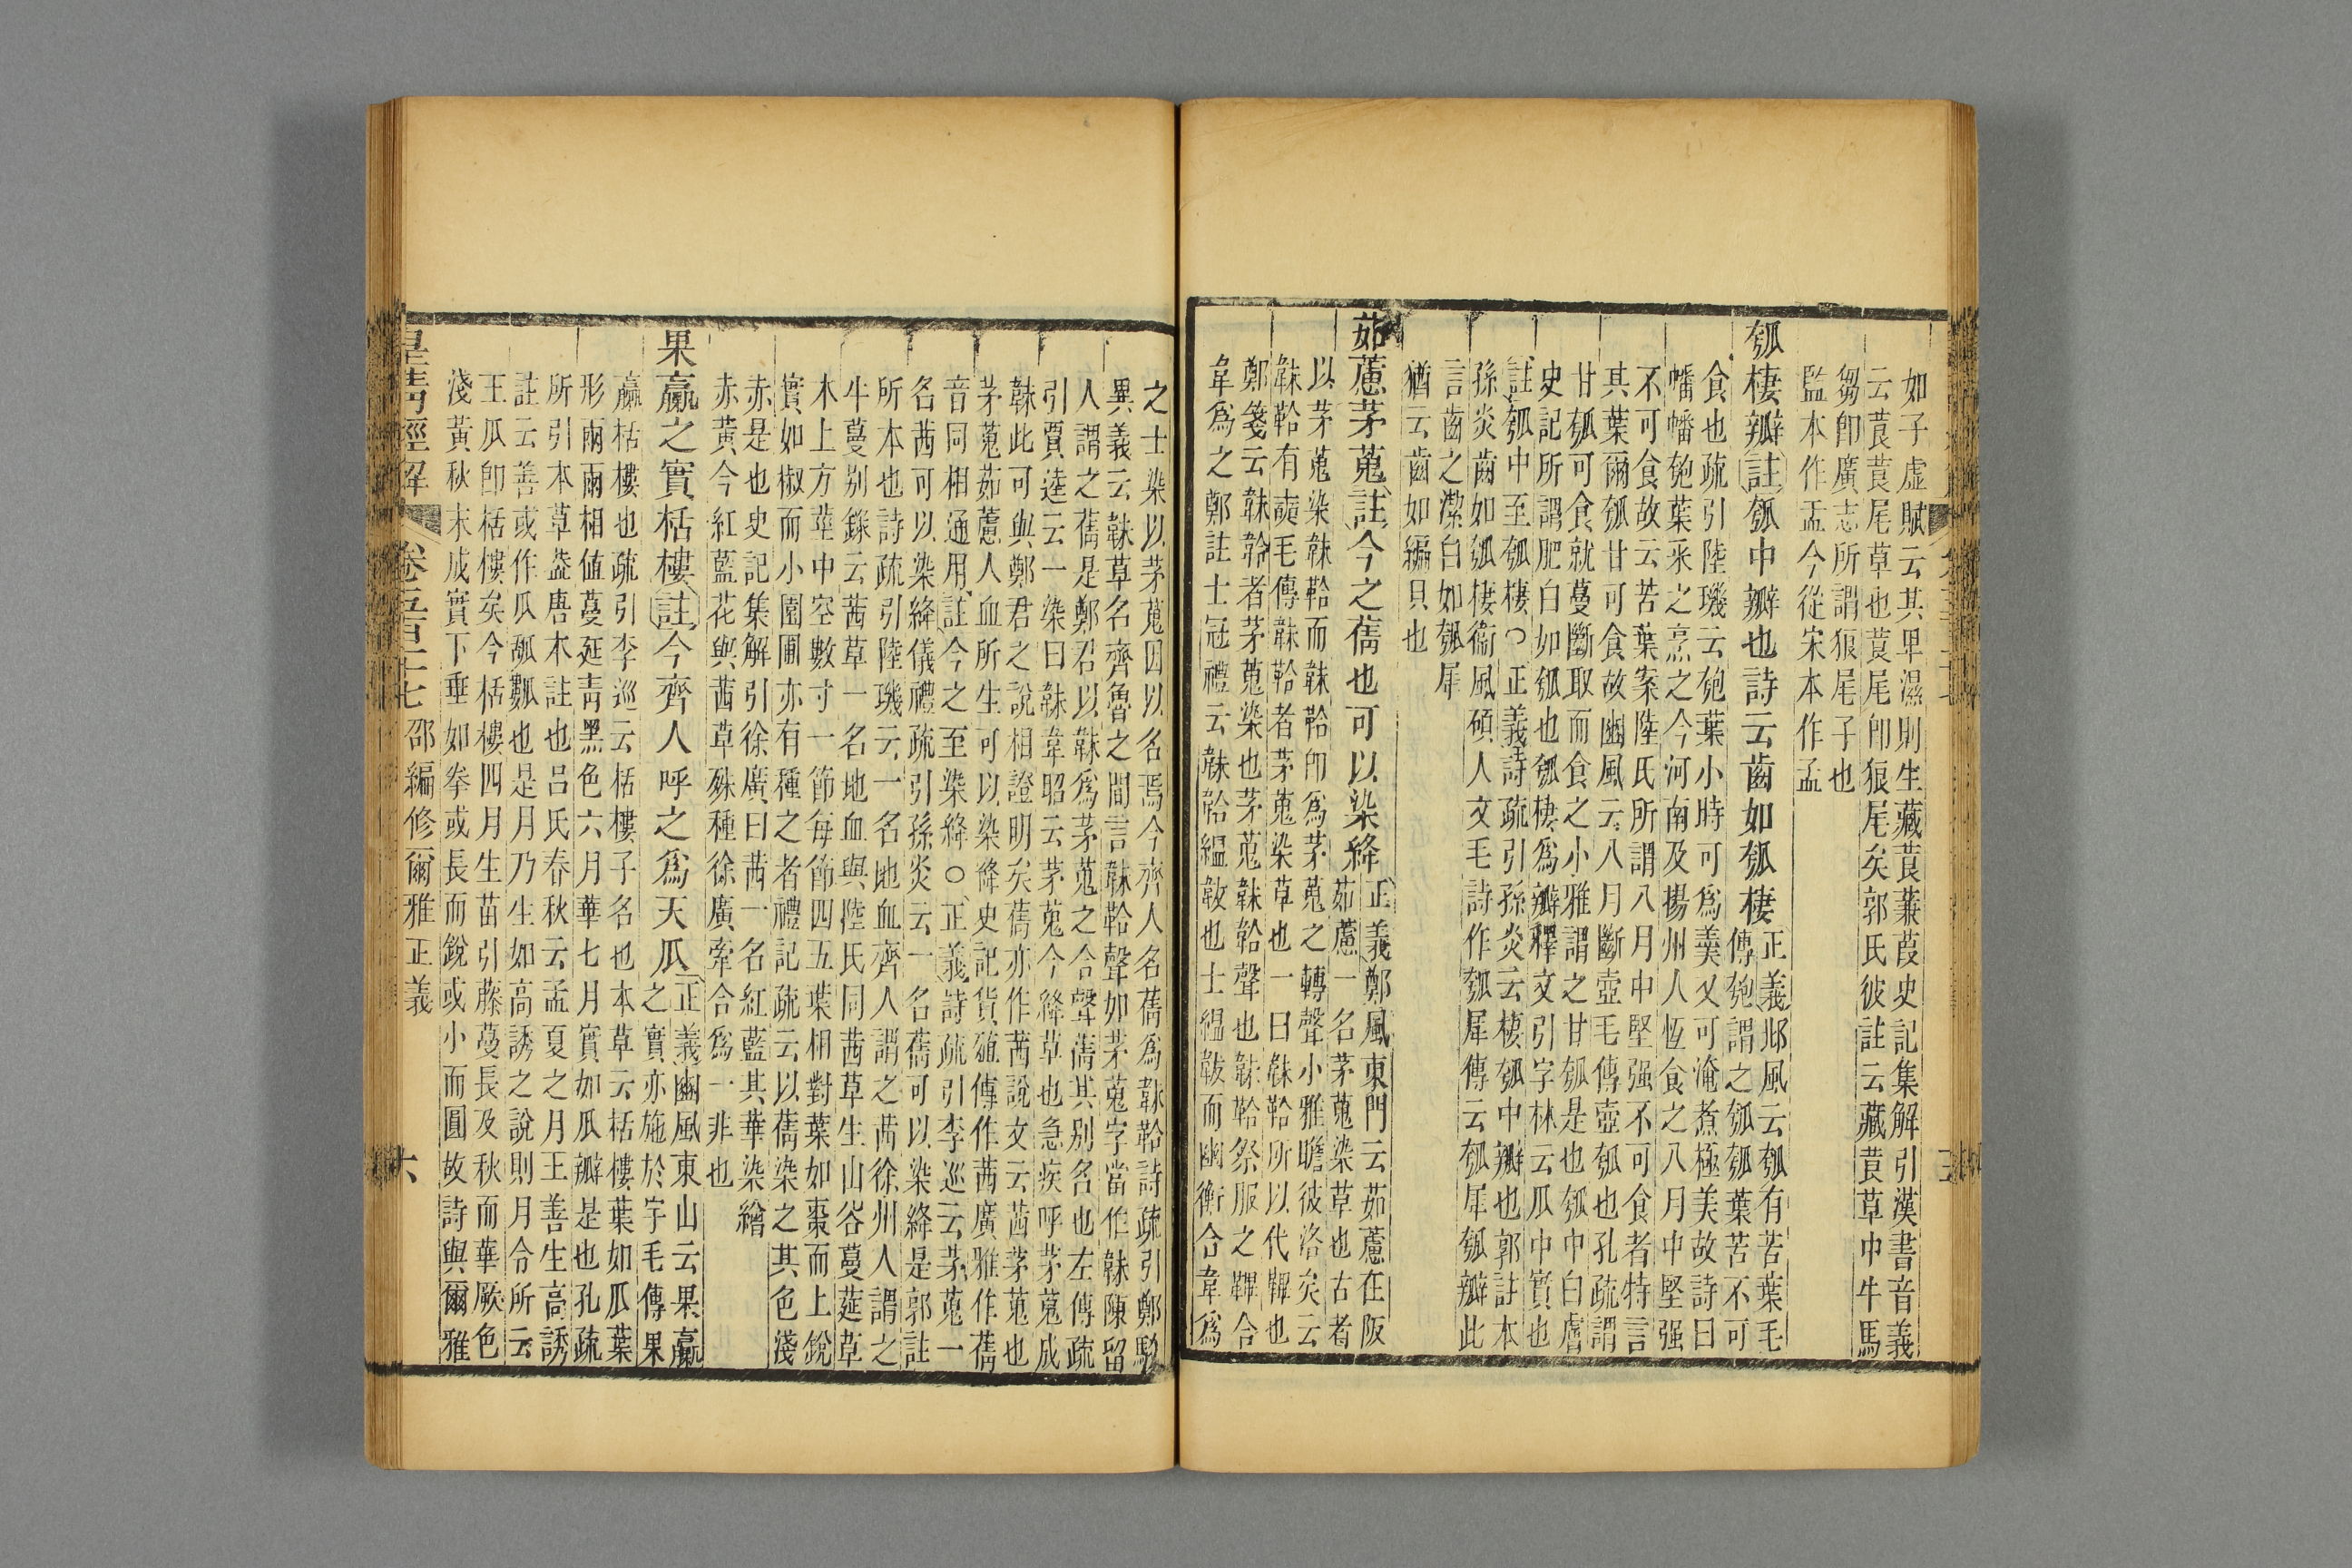 如子虛賦云其卑濕則生藏莨蒹葭史記集解引漢書音義
云莨莨尾草也莨尾卽狼尾矣郭氏彼註云藏莨草中牛馬
芻卽廣志所謂狼尾子也
監本作盂今從宋本作孟
瓠棲瓣註瓠中瓣也詩云齒如瓠棲正義邶風云瓠有苦葉毛
傳匏謂之瓠瓠葉苦不可
食也疏引陸璣云匏葉小時可爲羹又可淹煮極美故詩曰
幡幡匏葉采之烹之今河南及揚州人恆食之八月中堅强
不可食故云苦葉案陸氏所謂八月中堅强不可食者特言
其葉爾瓠甘可食故豳風云八月斷壺毛傳壺瓠也孔疏謂
甘瓠可食就蔓斷取而食之小雅謂之甘瓠是也瓠中白膚
史記所謂肥白如瓠也瓠棲爲瓣釋文引字林云瓜中實也
註瓠中至瓠棲○正義詩疏引孫炎云棲瓠中瓣也郭註本
孫炎齒如瓠棲衞風碩人文毛詩作瓠犀傳云瓠犀瓠瓣此
言齒之潔白如瓠犀
猶云齒如編貝也
茹藘茅蒐註今之蒨也可以染絳正義鄭風東門云茹藘在阪
茹藘一名茅蒐染草也古者
以茅蒐染韎韐而韎韐卽爲茅蒐之轉聲小雅瞻彼洛矣云
韎韐有奭毛傳韎韐者茅蒐染草也一曰韎韐所以代鞸也
鄭箋云韎韐者茅蒐染也茅蒐韎韐聲也韎韐祭服之鞸合
韋爲之鄭註士冠禮云韎韐縕韍也士縕韍而幽衡合韋爲
之士染以茅蒐因以名焉今齊人名蒨爲韎韐詩疏引鄭駮
異義云韎草名齊魯之間言韎韐聲如茅蒐字當作韎陳留
人謂之蒨是鄭君以韎爲茅蒐之合聲蒨其别名也左傳疏
引賈逵云一染曰韎韋昭云茅蒐今絳草也急疾呼茅蒐成
韎此可與鄭君之說相證明矣蒨亦作茜說文云茜茅蒐也
茅蒐茹藘人血所生可以染絳史記貨殖傳作茜廣雅作蒨
音同相通用註今之至染絳○正義詩疏引李巡云茅蒐一
名茜可以染絳儀禮疏引孫炎云一名蒨可以染絳是郭註
所本也詩疏引陸璣云一名地血齊人謂之茜徐州人謂之
牛蔓别錄云茜草一名地血與陸氏同茜草生山谷蔓莚草
木上方莖中空數寸一節每節四五葉相對葉如棗而上銳
實如椒而小園圃亦有種之者禮記疏云以蒨染之其色淺
赤是也史記集解引徐廣曰茜一名紅藍其華染繒
赤黃今紅藍花與茜草殊種徐廣牽合爲一非也
果蠃之實栝樓註今齊人呼之爲天瓜正義豳風東山云果蠃
之實亦施於宇毛傳果
蠃栝樓也疏引李巡云栝樓子名也本草云栝樓葉如瓜葉
形兩兩相値蔓延靑黑色六月華七月實如瓜瓣是也孔疏
所引本草葢唐木註也呂氏春秋云孟夏之月王善生高誘
註云善或作瓜瓠瓤也是月乃生如高誘之說則月令所云
王瓜卽栝樓矣今栝樓四月生苗引藤蔓長及秋而華厥色
淺黃秋末成實下垂如拳或長而銳或小而圓故詩與爾雅
皇淸經解 卷五百二十七 邵編修爾雅正義 六